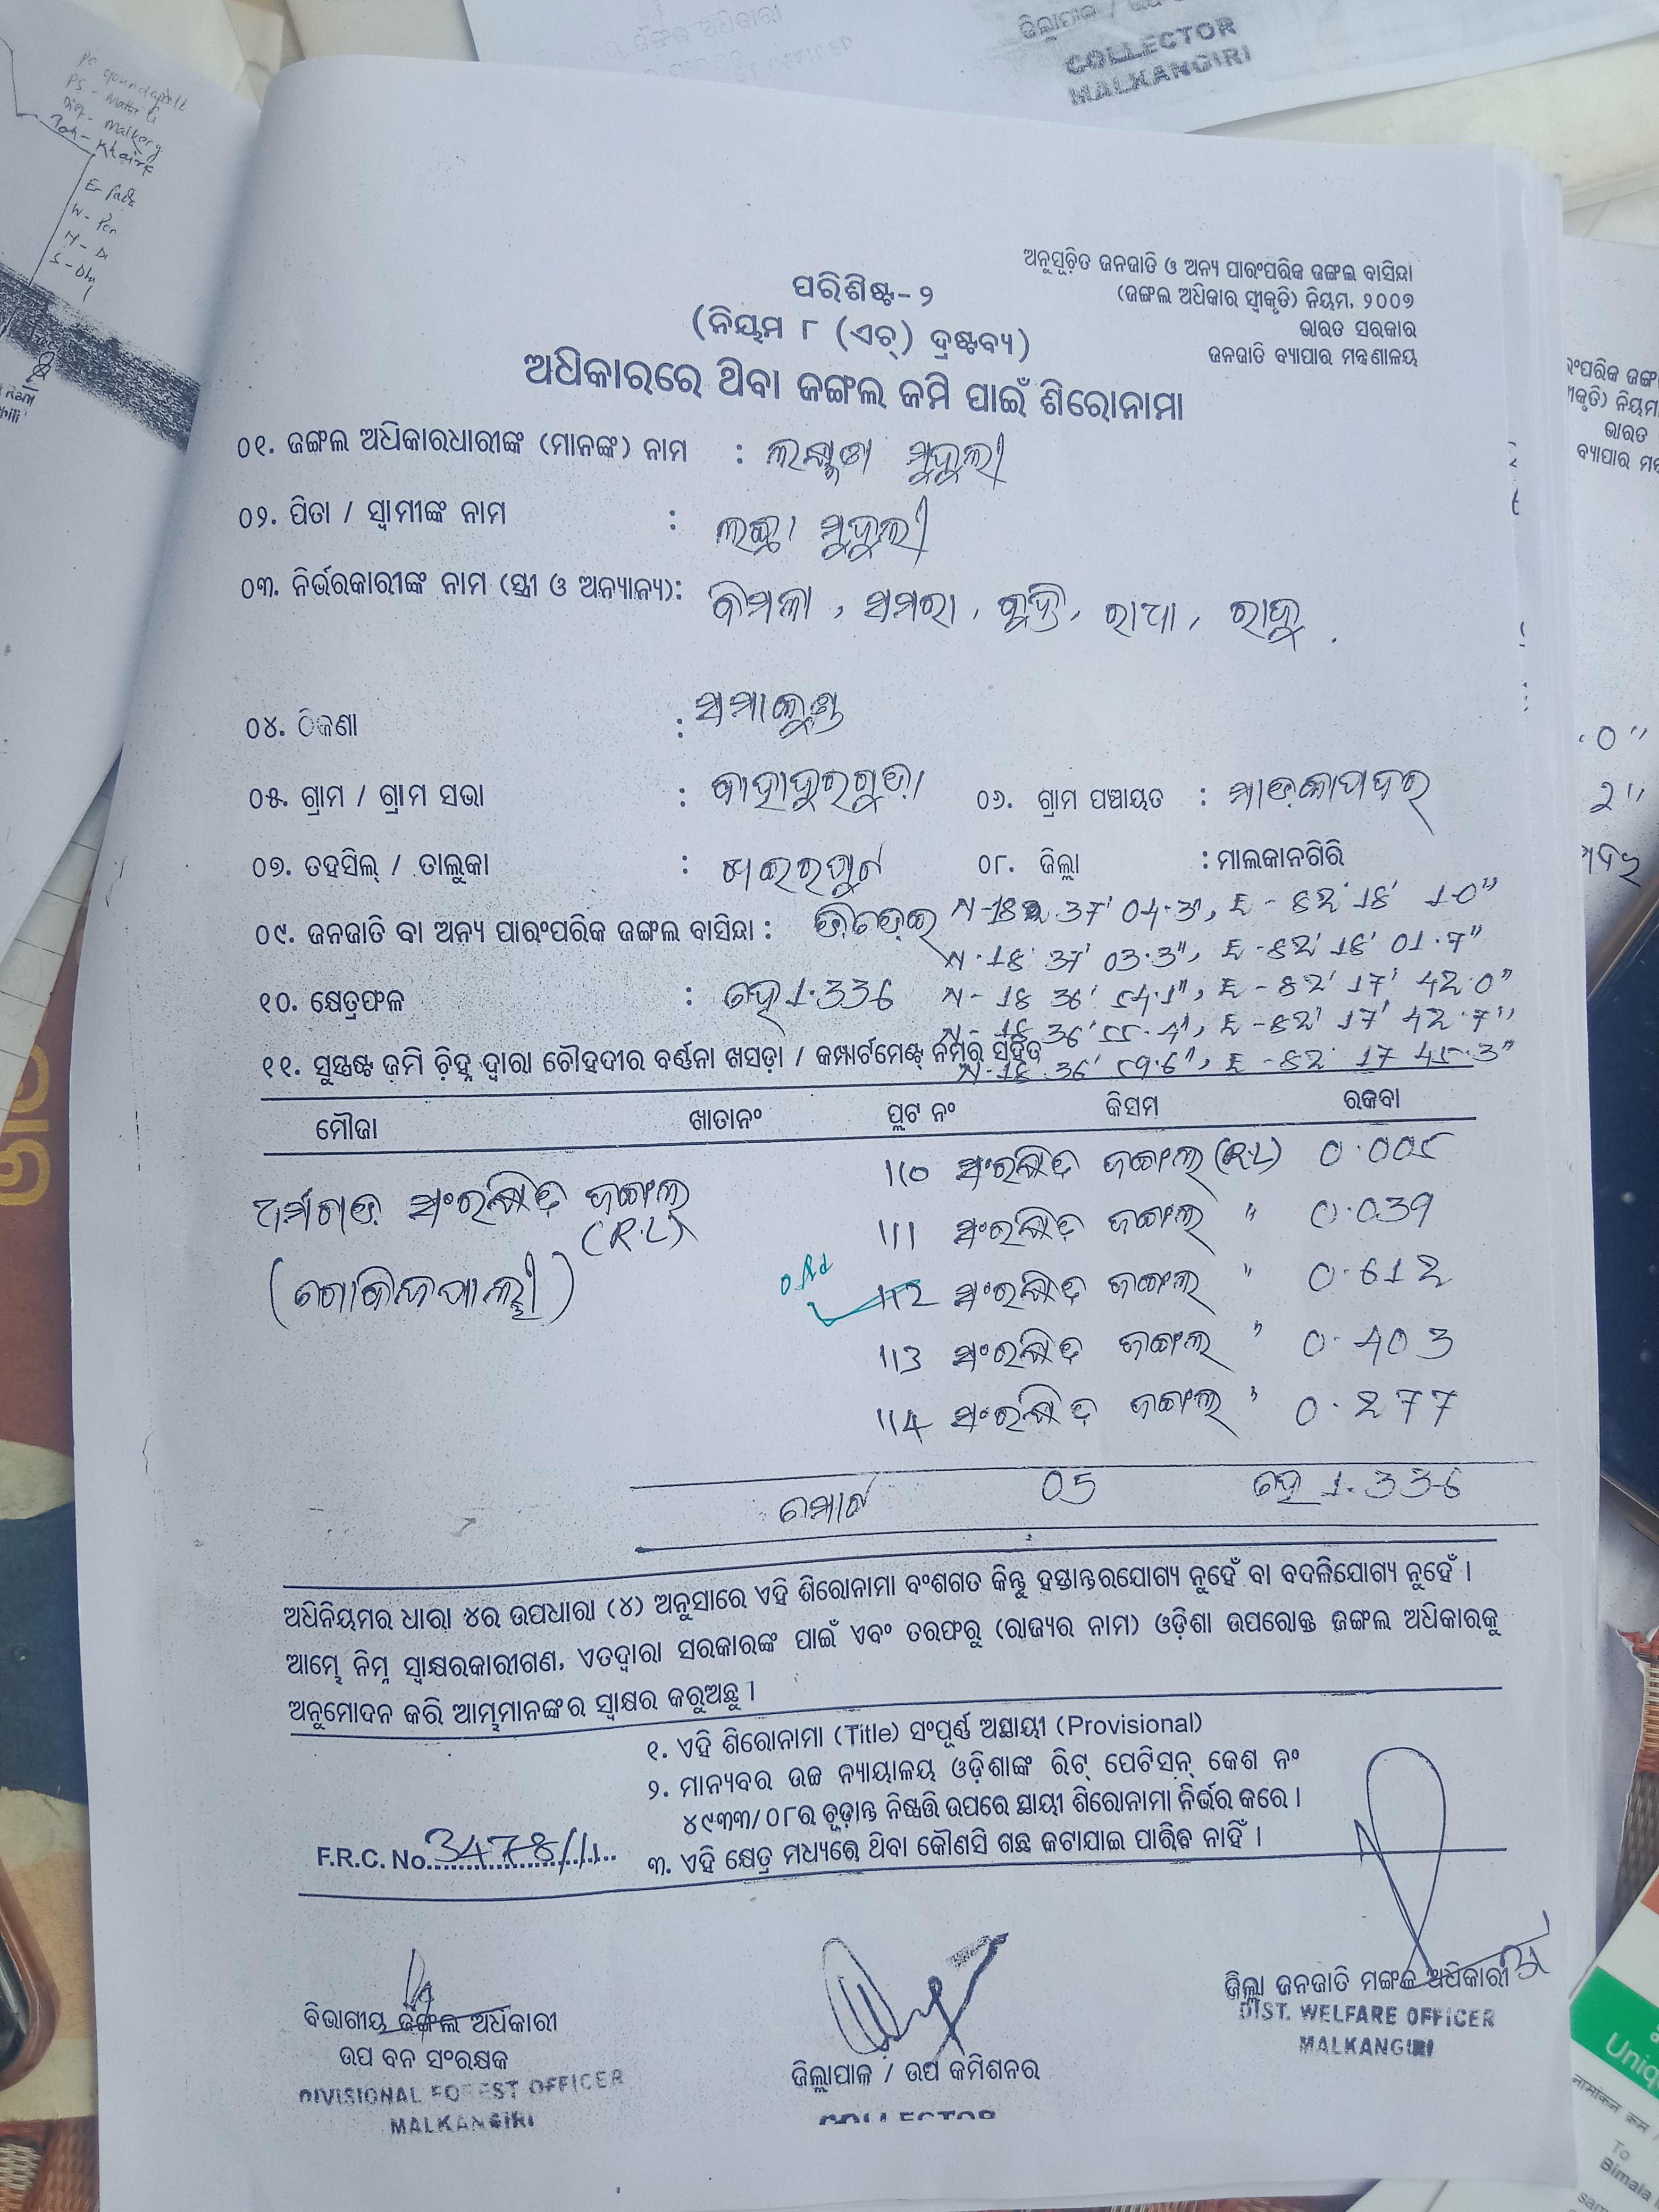 COLLECTOR
MALKANGIRI
ଅନୁସୂଚିତ ଜନଜାତି ଓ ଅନ୍ୟ ପାରଂପରିକ ଜଙ୍ଗଲ ବାସିନ୍ଦା
(ଜଙ୍ଗଲ ଅଧିକାର ସ୍ୱୀକୃତି) ନିୟମ, ୨୦୦୭
ଭାରତ ସରକାର
ଜନଜାତି ବ୍ୟାପାର ମନ୍ତ୍ରଣାଳୟ
ପରିଶିଷ୍ଟ-୨
(ନିୟମ ୮ (ଏଚ୍) ଦ୍ରଷ୍ଟବ୍ୟ)
ଅଧିକାରରେ ଥିବା ଜଙ୍ଗଲ ଜମି ପାଇଁ ଶିରୋନାମା
୦୧. ଜଙ୍ଗଲ ଅଧିକାରଧାରୀଙ୍କ (ମାନଙ୍କ) ନାମ : ମୁଦୁଲୀ
୦୨. ପିତା / ସ୍ୱାମୀଙ୍କ ନାମ : ମୁଦୁଲୀ
୦୩. ନିର୍ଭରକାରୀଙ୍କ ନାମ (ସ୍ତ୍ରୀ ଓ ଅନ୍ୟାନ୍ୟ): ବିମଳା, ସମରା, ରାଧା, ରାଜୁ
୦୪. ଠିକଣା :
୦୫. ଗ୍ରାମ / ଗ୍ରାମ ସଭା : ବାହାଦୁରଗୁଡ଼ା ୦୬. ଗ୍ରାମ ପଞ୍ଚାୟତ :
୦୭. ତହସିଲ୍ / ତାଲୁକା : ଖଇରପୁଟ ୦୮. ଜିଲ୍ଲା : ମାଲକାନଗିରି
୦୯. ଜନଜାତି ବା ଅନ୍ୟ ପାରଂପରିକ ଜଙ୍ଗଲ ବାସିନ୍ଦା : N-18 37' 04.3", E-82' 18' 1.0"
N-18 37' 03.3", E-82' 18' 01.7"
୧୦. କ୍ଷେତ୍ରଫଳ : ହେ 1.336 N-18 36' 54.1", E-82' 17' 42.0"
N-18 36' 55.4", E-82' 17' 42.7"
୧୧. ସୁସ୍ପଷ୍ଟ ଜମି ଚିହ୍ନ ଦ୍ୱାରା ଚୌହଦୀର ବର୍ଣ୍ଣନା ଖସଡ଼ା / କମ୍ପାର୍ଟମେଣ୍ଟ ନମ୍ବର ସହିତ
N-18 36' 59.6", E-82' 17 45.3"
ମୌଜା ଖାତାନଂ ପ୍ଲଟ ନଂ କିସମ ରକବା
110 ସଂରକ୍ଷିତ ଜଙ୍ଗଲ (R.L) 0.005
ସଂରକ୍ଷିତ ଜଙ୍ଗଲ (R.L)
111 ସଂରକ୍ଷିତ ଜଙ୍ଗଲ " 0.039
(ଗୋବିନ୍ଦପାଲ୍ଲୀ)
112 ସଂରକ୍ଷିତ ଜଙ୍ଗଲ " 0.612
113 ସଂରକ୍ଷିତ ଜଙ୍ଗଲ " 0.403
114 ସଂରକ୍ଷିତ ଜଙ୍ଗଲ " 0.277
ମୋଟ 05 ହେ 1.336
ଅଧିନିୟମର ଧାରା ୪ର ଉପଧାରା (୪) ଅନୁସାରେ ଏହି ଶିରୋନାମା ବଂଶଗତ କିନ୍ତୁ ହସ୍ତାନ୍ତରଯୋଗ୍ୟ ନୁହେଁ ବା ବଦଳିଯୋଗ୍ୟ ନୁହେଁ ।
ଆମ୍ଭେ ନିମ୍ନ ସ୍ୱାକ୍ଷରକାରୀଗଣ, ଏତଦ୍ୱାରା ସରକାରଙ୍କ ପାଇଁ ଏବଂ ତରଫରୁ (ରାଜ୍ୟର ନାମ) ଓଡ଼ିଶା ଉପରୋକ୍ତ ଜଙ୍ଗଲ ଅଧିକାରକୁ
ଅନୁମୋଦନ କରି ଆମ୍ଭମାନଙ୍କର ସ୍ୱାକ୍ଷର କରୁଅଛୁ ।
୧. ଏହି ଶିରୋନାମା (Title) ସଂପୂର୍ଣ୍ଣ ଅସ୍ଥାୟୀ (Provisional)
୨. ମାନ୍ୟବର ଉଚ୍ଚ ନ୍ୟାୟାଳୟ ଓଡ଼ିଶାଙ୍କ ରିଟ୍ ପେଟିସନ୍ କେଶ ନଂ
୪୯୩୩/୦୮ର ଚୂଡ଼ାନ୍ତ ନିଷ୍ପତ୍ତି ଉପରେ ସ୍ଥାୟୀ ଶିରୋନାମା ନିର୍ଭର କରେ ।
୩. ଏହି କ୍ଷେତ୍ର ମଧ୍ୟରେ ଥିବା କୌଣସି ଗଛ କଟାଯାଇ ପାରିବ ନାହିଁ ।
F.R.C. No. 3478/11
ବିଭାଗୀୟ ଜଙ୍ଗଲ ଅଧିକାରୀ
ଉପ ବନ ସଂରକ୍ଷକ
DIVISIONAL FOREST OFFICER
MALKANGIRI
ଜିଲ୍ଲାପାଳ / ଉପ କମିଶନର
COLLECTOR
ଜିଲ୍ଲା ଜନଜାତି ମଙ୍ଗଳ ଅଧିକାରୀ
DIST. WELFARE OFFICER
MALKANGIRI
To
Bimala